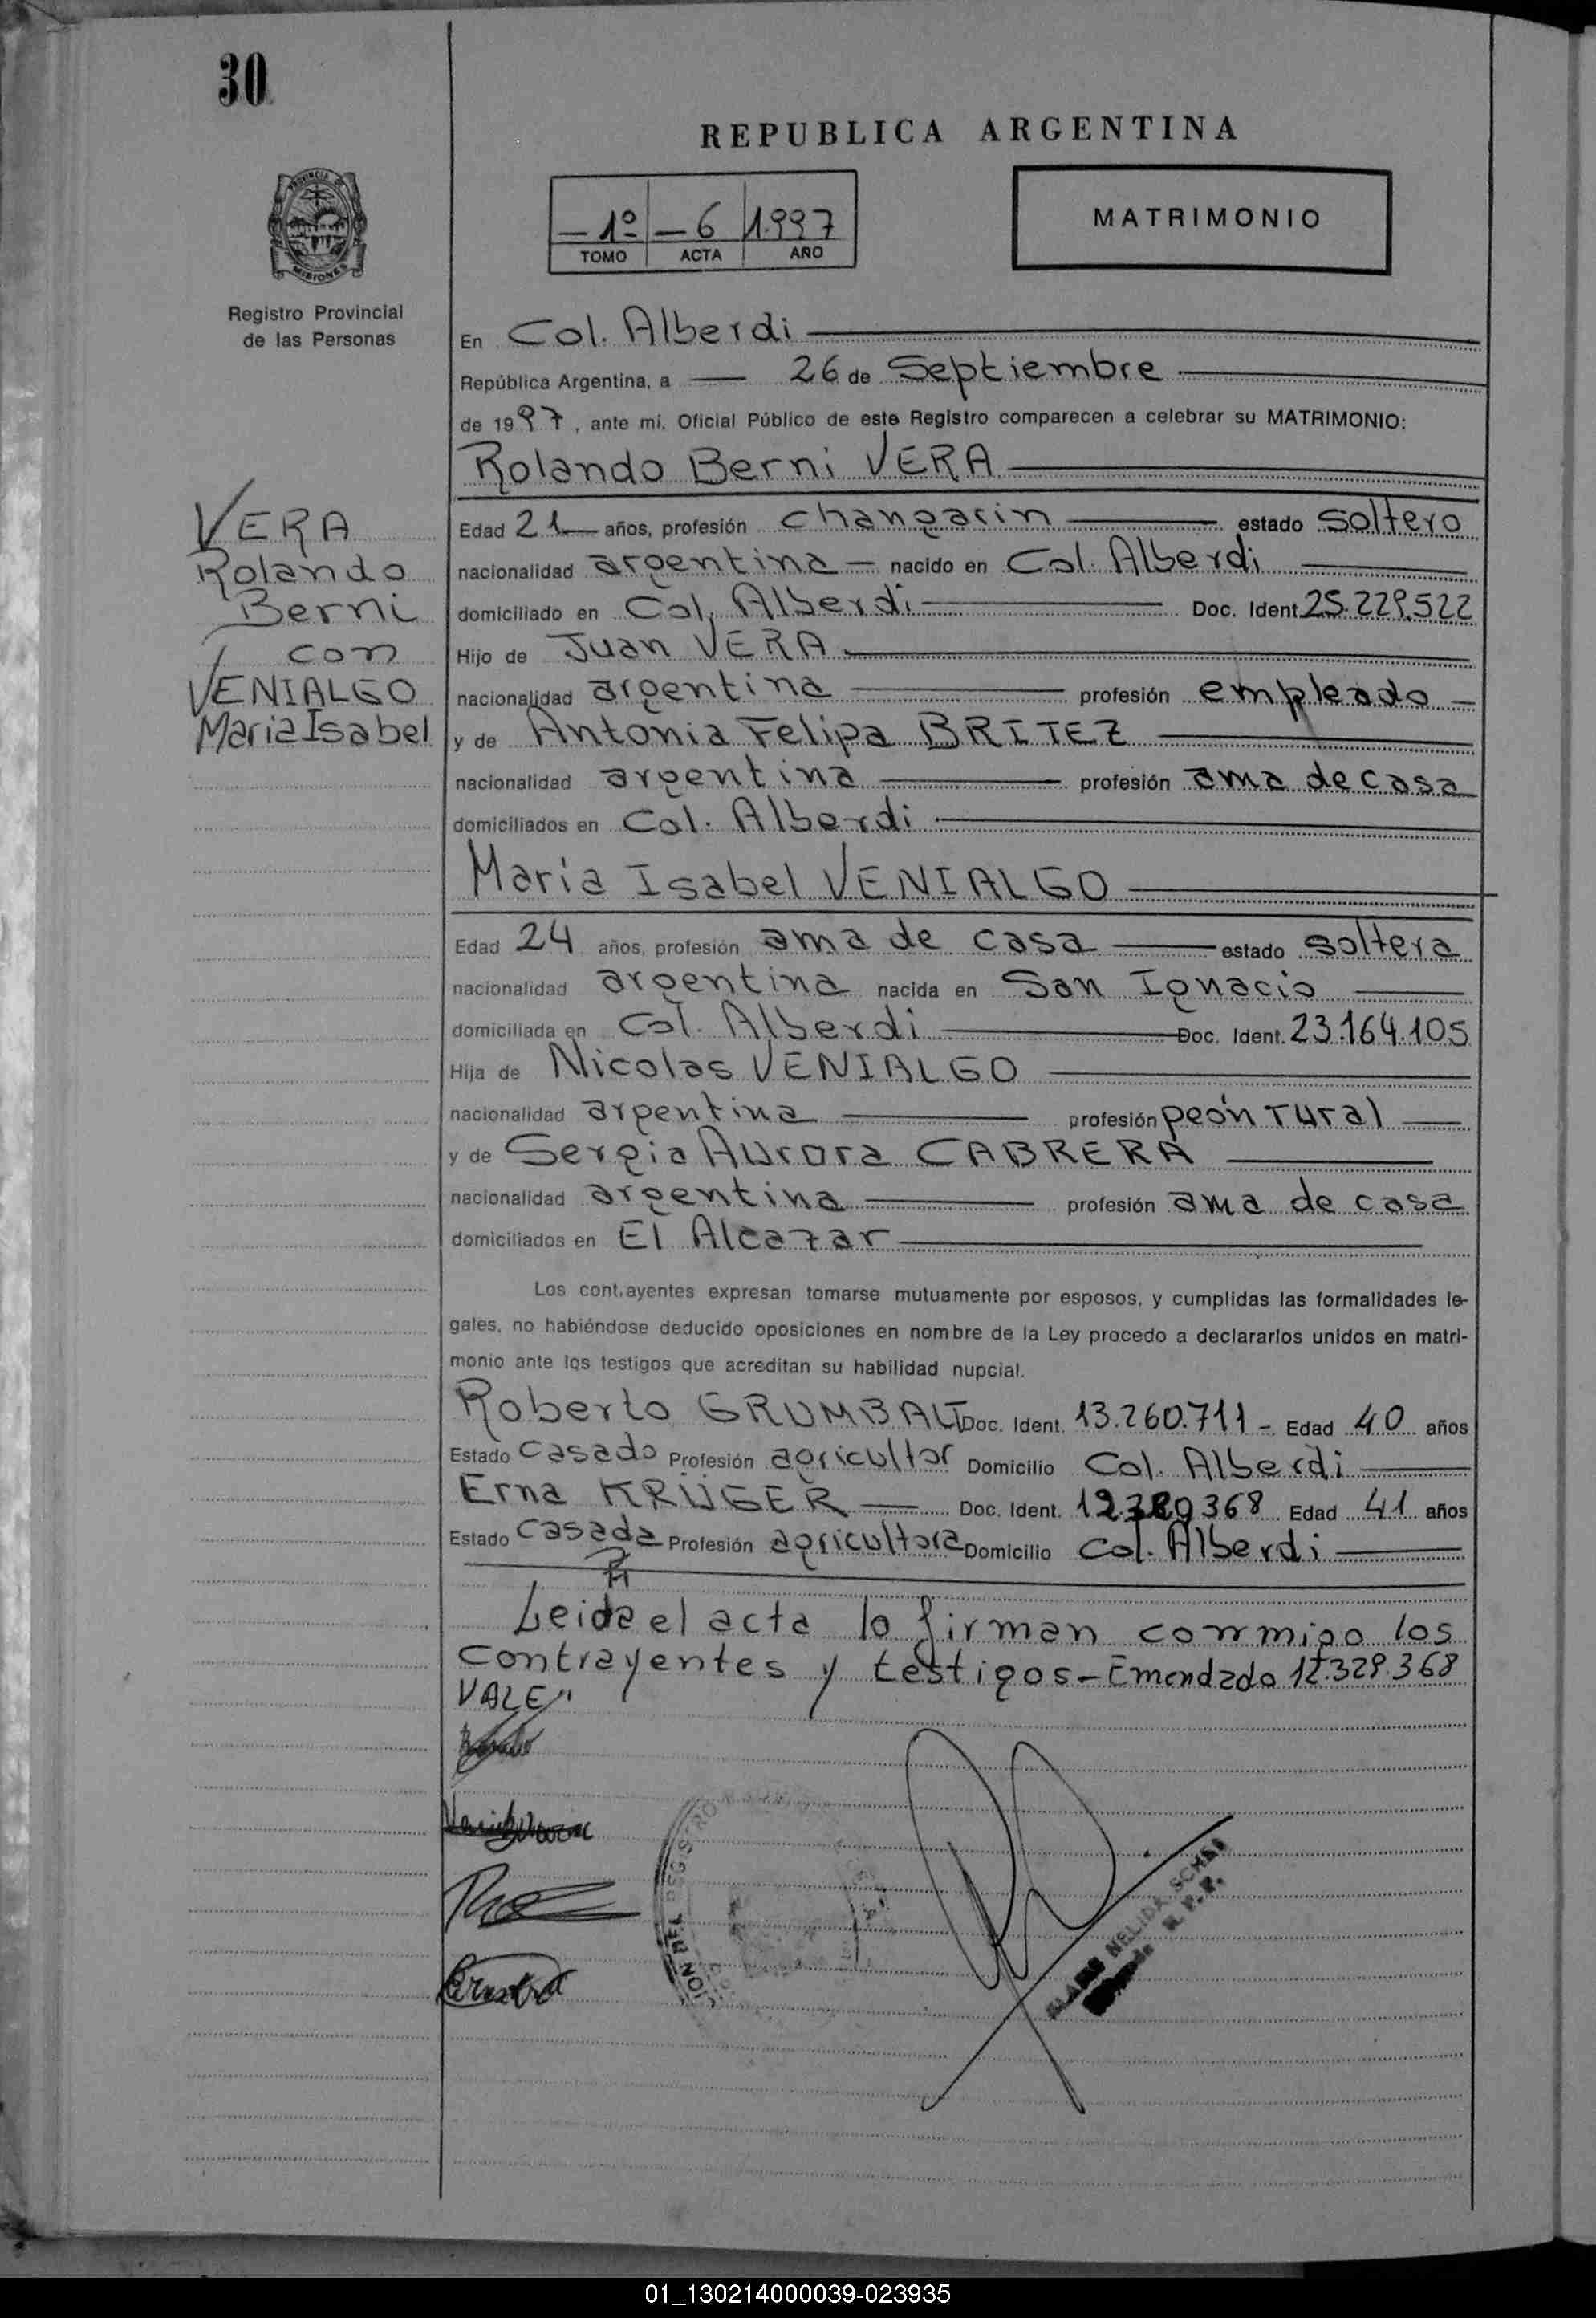 30
REPUBLICA ARGENTINA
PROVINCIA DE
MISIONES
- 1º - 6 1.997
TOMO ACTA AÑO
MATRIMONIO
Registro Provincial
de las Personas
En Col. Alberdi
República Argentina, a 26 de Septiembre
de 1997, ante mi, Oficial Público de este Registro comparecen a celebrar su MATRIMONIO:
Rolando Berni VERA
VERA
Rolando
Berni
con
VENIALGO
Maria Isabel
Edad 21 años, profesión changarin estado soltero
nacionalidad argentina nacido en Col. Alberdi
domiciliado en Col. Alberdi Doc. Ident. 25.229.522
Hijo de Juan VERA
nacionalidad argentina profesión empleado
y de Antonia Felipa BRITEZ
nacionalidad argentina profesión ama de casa
domiciliados en Col. Alberdi
Maria Isabel VENIALGO
Edad 24 años, profesión ama de casa estado soltera
nacionalidad argentina nacida en San Ignacio
domiciliada en Col. Alberdi Doc. Ident. 23.164.105
Hija de Nicolas VENIALGO
nacionalidad argentina profesión peón rural
y de Sergia Aurora CABRERA
nacionalidad argentina profesión ama de casa
domiciliados en El Alcazar
Los contrayentes expresan tomarse mutuamente por esposos, y cumplidas las formalidades le-
gales, no habiéndose deducido oposiciones en nombre de la Ley procedo a declararlos unidos en matri-
monio ante los testigos que acreditan su habilidad nupcial.
Roberto GRUMBALT Doc. Ident. 13.260.711 - Edad 40 años
Estado casado Profesión agricultor Domicilio Col. Alberdi
Erna KRÜGER Doc. Ident. 12.329368 Edad 41 años
Estado casada Profesión agricultora Domicilio Col. Alberdi
Leida el acta lo firman conmigo los
contrayentes y testigos - Emendado 12.329.368
VALE"
NELIDA
01_130214000039-023935